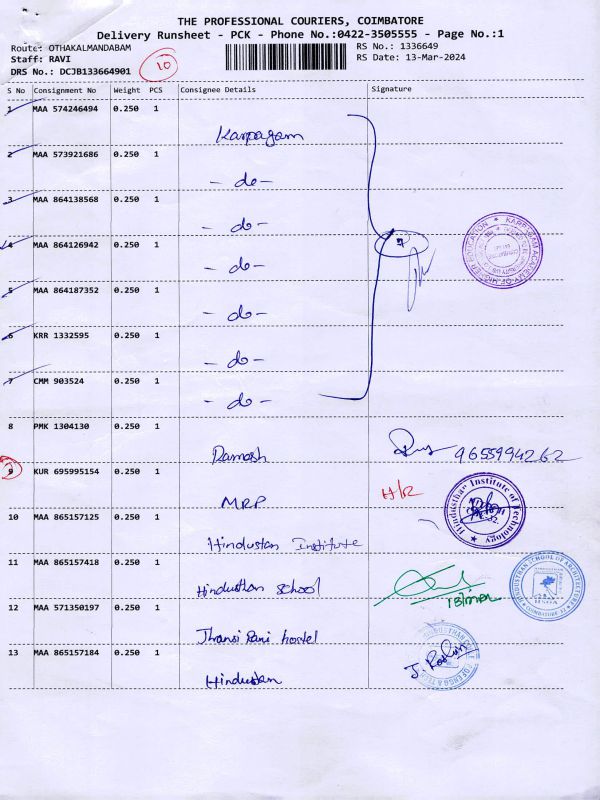 THE PROFESSIONAL COURIERS, COIMBATORE
Delivery Runsheet - PCK - Phone No.:0422-3505555 - Page No.:1
Route: OTHAKALMANDABAM
RS No.: 1336649
Staff: RAVI
RS Date: 13-Mar-2024
DRS No.: DCJB133664901
10
S No Consignment No Weight PCS Consignee Details Signature
1 MAA 574246494 0.250 1
Karpagam
2 MAA 573921686 0.250 1
- do -
3 MAA 864138568 0.250 1
- do -
4 MAA 864126942 0.250 1
7
- do -
5 MAA 864187352 0.250 1
- do -
6 KRR 1332595 0.250 1
- do -
7 CMM 903524 0.250 1
- do -
8 PMK 1304130 0.250 1
Ramesh 9655994262
9 KUR 695995154 0.250 1
MRP H/R
Hindusthan Institute of Technology
10 MAA 865157125 0.250 1
Hindustan Institute
11 MAA 865157418 0.250 1
Hindusthan School
HINDUSTHAN SCHOOL OF ARCHITECTURE
12 MAA 571350197 0.250 1
Jhansi Rani hostel
13 MAA 865157184 0.250 1
Hindustan